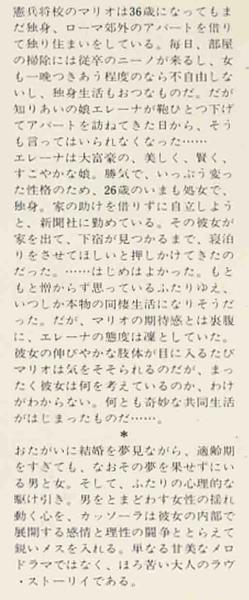 憲兵将校のマリオは36歳になってもま
だ独身、ローマ郊外のアパートを借り
て独り住まいをしている。毎日、部屋
の掃除には従卒のニーノが来るし、女
も一晩つきあう程度のなら不自由しな
いし、独身生活もおつなものだ。だが
知りあいの娘エレーナが鞄ひとつ下げ
てアパートを訪ねてきた日から、そう
も言ってはいられなくなった……
エレーナは大富豪の、美しく、賢く、
すこやかな娘。勝気で、いっぷう変っ
た性格のため、26歳のいまも処女で、
独身。家の助けを借りずに自立しよう
と、新聞社に勤めている。その彼女が
家を出て、下宿が見つかるまで、寝泊
りをさせてほしいと押しかけてきたの
だった。……はじめはよかった。もと
もと憎からず思っているふたりゆえ、
いつしか本物の同棲生活になりそうだ
った。だが、マリオの期待感とは裏腹
に、エレーナの態度は凜としていた。
彼女の伸びやかな肢体が目に入るたび
マリオは気をそそられるのだが、まっ
たく彼女は何を考えているのか、わけ
がわからない。何とも奇妙な共同生活
がはじまったものだ……。
*
おたがいに結婚を夢見ながら、適齢期
をすぎても、なおその夢を果せずにい
る男と女。そして、ふたりの心理的な
駆け引き。男をとまどわす女性の揺れ
動く心を、カッソーラは彼女の内部で
展開する感情と理性の闘争ととらえて
鋭いメスを入れる。単なる甘美なメロ
ドラマではなく、ほろ苦い大人のラヴ
・ストーリイである。